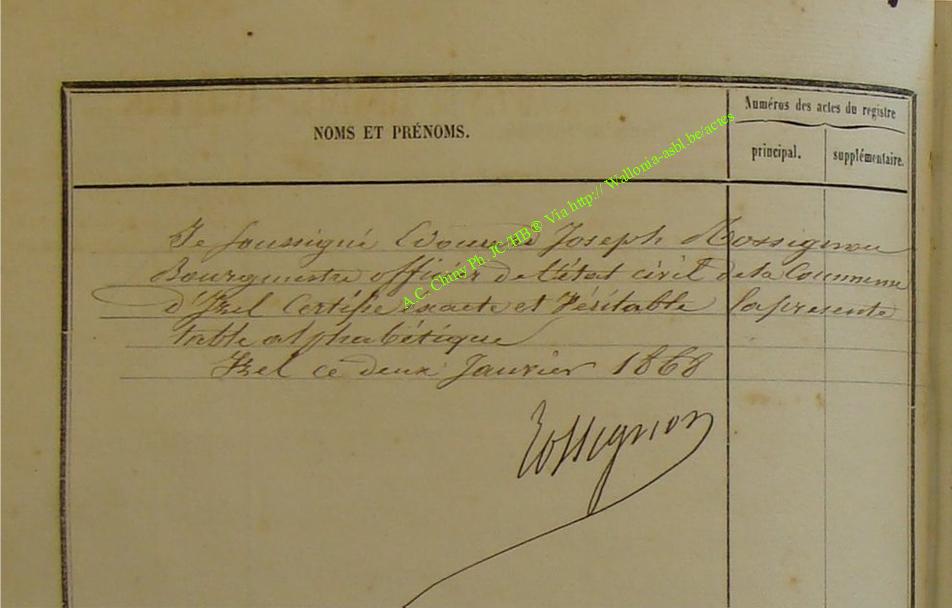 Numéros des actes du registre
NOMS ET PRÉNOMS.
principal.
supplémentaire.
A.C. Chiny Ph JC/HB® Via http:// Wallonia-asbl.be/actes
Je soussigné Edouard Joseph Rossignon
Bourgmestre officier de l'état civil de la Commune
d'Izel Certifie exacte et Véritable la presente
table alphabétique
Izel ce deux Janvier 1868
Rossignon